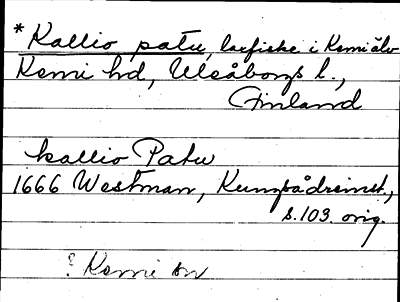 * Kallio patu, laxfiske i Kemi älv
Kemi hd, Uleåborgs l.,
Finland
kallio Patu
1666 Westman, Kungsådreinst.,
s. 103. orig.
? Kemi sn